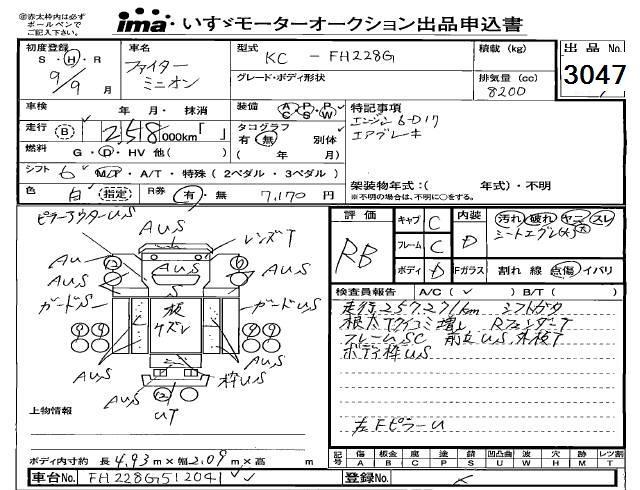 ㊟赤太枠内は必ず
ボールペンで
ご記入下さい。
ima いすゞモーターオークション出品申込書
初度登録
S・H・R
9/9月
車名
ファイター
ミニオン
型式
KC - FH228G
グレード・ボディ形状
積載 (kg)
排気量 (cc)
8200
出品 No.
3047
車検 年・月・抹消
装備 AC PS PW
特記事項
エンジン6D17
エアブレーキ
走行 B 258000km「 」
タコグラフ 有 無 別体
( 年 月)
燃料 G・D・HV 他( )
シフト 6 MT・A/T・特殊(2ペダル・3ペダル)
架装物年式:( 年式)・不明
※不明の場合は、不明に○をする。
色 白 指定 R券 有・無 7,170円
ピラーアウターUS
AUS
レンズT
AU
AUS
AU
S
ガードS
板
ガードUS
AUS
AUS
AU
枠US
UT
上物情報
評価
RB
キャブ C
フレーム C
ボディ D
内装 D
汚れ 破れ ヤニ スレ
Fガラス 割れ 線 点傷 イバリ
検査員報告 A/C(✓) B/T( )
走行257,271km シフトガタ
RフェンダーT
フレームSC 前立US,外板T
ボディ枠US
左FピラーU
ボディ内寸約 長4.93m×幅2.09m×高 m
記号 傷A 板金B 腐C 塗P 錆S 凹凸曲U 波W 穴H 跡M レツ割T
車台No. FH228G512041
登録No.